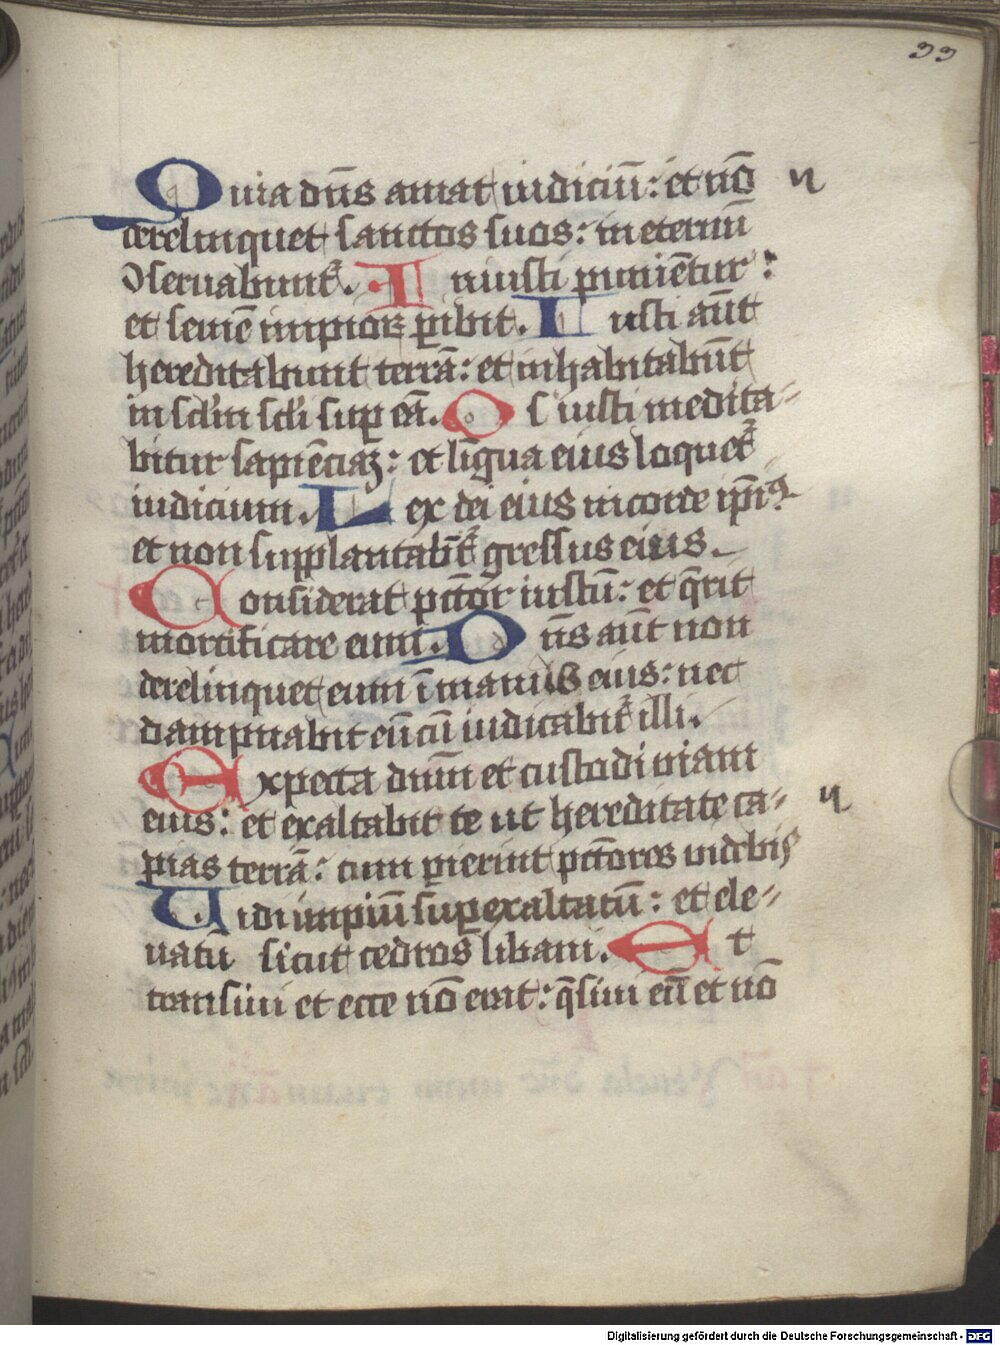 33
Quia dn̄s amat iudiciū: et nō
derelinquet sanctos suos: in eternū
ↄseruabunt᷑. Iniusti puniētur:
et semē impioꝝ ꝑibit. Iusti aūt
hereditabunt terrā: et inhabitabūt
in sc̄lm sc̄li suꝑ eā. Os iusti medita-
bitur sapiēciaꝫ: et līgua eius loquet᷑
iudicium. Lex dei eius in corde ip̄iꝰ
et non supplantabūt᷑ gressus eius.
Considerat pc̄tor iustū: et q̄rit
mortificare eum. Dn̄s aūt non
derelinquet eum ī manibꝰ eius: nec
dampnabit eū cū iudicabit᷑ illi.
Expecta dnm̄ et custodi uiam
eius: et exaltabit te ut hereditate ca-
pias terrā: cum ꝑierint pc̄tores uidebis
Uidi impiū suꝑexaltatū: et ele-
uatū sicut cedros libani. Et
transiui et ecce nō erat: q̄siui eū et nō
Digitalisierung gefördert durch die Deutsche Forschungsgemeinschaft - DFG